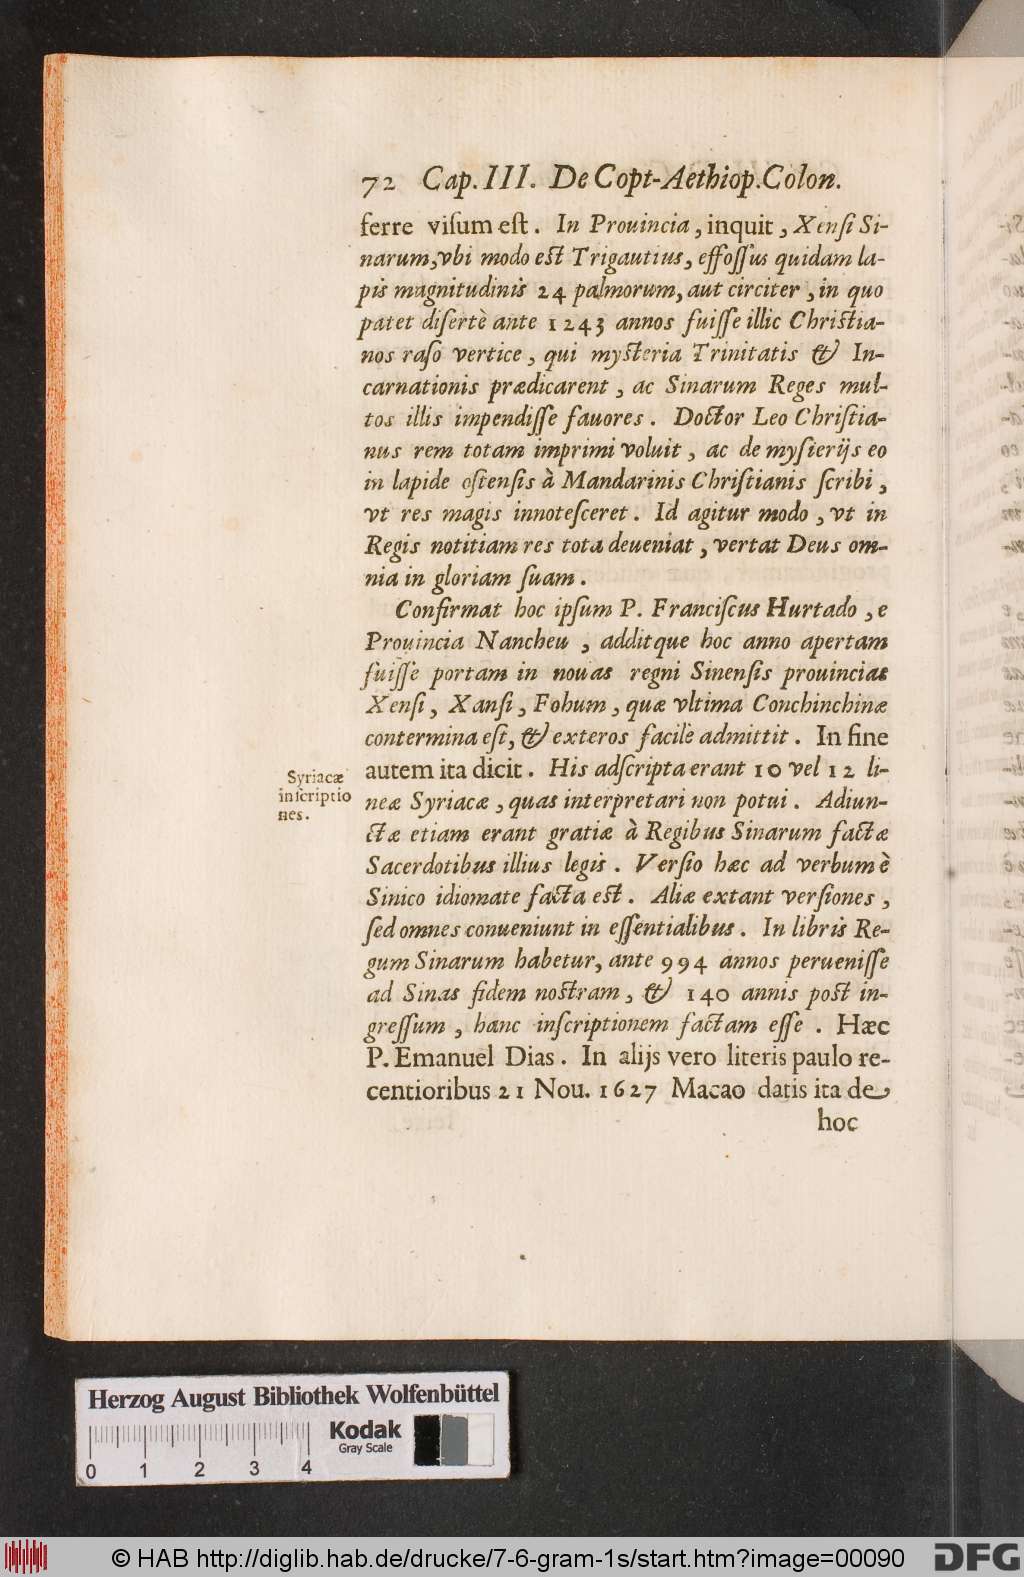 72 Cap. III. De Copt-Aethiop. Colon.
ferre viſum est. In Prouincia, inquit, Xenſi Si-
narum, vbi modo est Trigautius, effoſſus quidam la-
pis magnitudinis 24 palmorum, aut circiter, in quo
patet diſertè ante 1243 annos fuiſſe illic Christia-
nos raſo vertice, qui mysteria Trinitatis & In-
carnationis prædicarent, ac Sinarum Reges mul-
tos illis impendiſſe fauores. Doctor Leo Chriſtia-
nus rem totam imprimi voluit, ac de myſierijs eo
in lapide oſtenſis à Mandarinis Chriſtianis ſcribi,
vt res magis innoteſceret. Id agitur modo, vt in
Regis notitiam res tota deueniat, vertat Deus om-
nia in gloriam ſuam.
Confirmat hoc ipſum P. Franciſcus Hurtado, e
Prouincia Nancheu, additque hoc anno apertam
fuiſſe portam in nouas regni Sinenſis prouincias
Xenſi, Xanſi, Fohum, quæ vltima Conchinchinæ
contermina eſt, & exteros facilè admittit. In fine
autem ita dicit. His adſcripta erant 10 vel 12 li-
neæ Syriacæ, quas interpretari non potui. Adiun-
ctæ etiam erant gratiæ à Regibus Sinarum factæ
Sacerdotibus illius legis. Verſio hæc ad verbum è
Sinico idiomate facta est. Aliæ extant verſiones,
ſed omnes conueniunt in eſſentialibus. In libris Re-
gum Sinarum habetur, ante 994 annos perueniſſe
ad Sinas fidem nostram, & 140 annis post in-
greſſum, hanc inſcriptionem factam eſſe. Hæc
P. Emanuel Dias. In alijs vero literis paulo re-
centioribus 21 Nou. 1627 Macao datis ita de
hoc
Syriacæ
inſcriptio
nes.
Herzog August Bibliothek Wolfenbüttel
Kodak
Gray Scale
0 1 2 3 4
© HAB http://diglib.hab.de/drucke/7-6-gram-1s/start.htm?image=00090
DFG